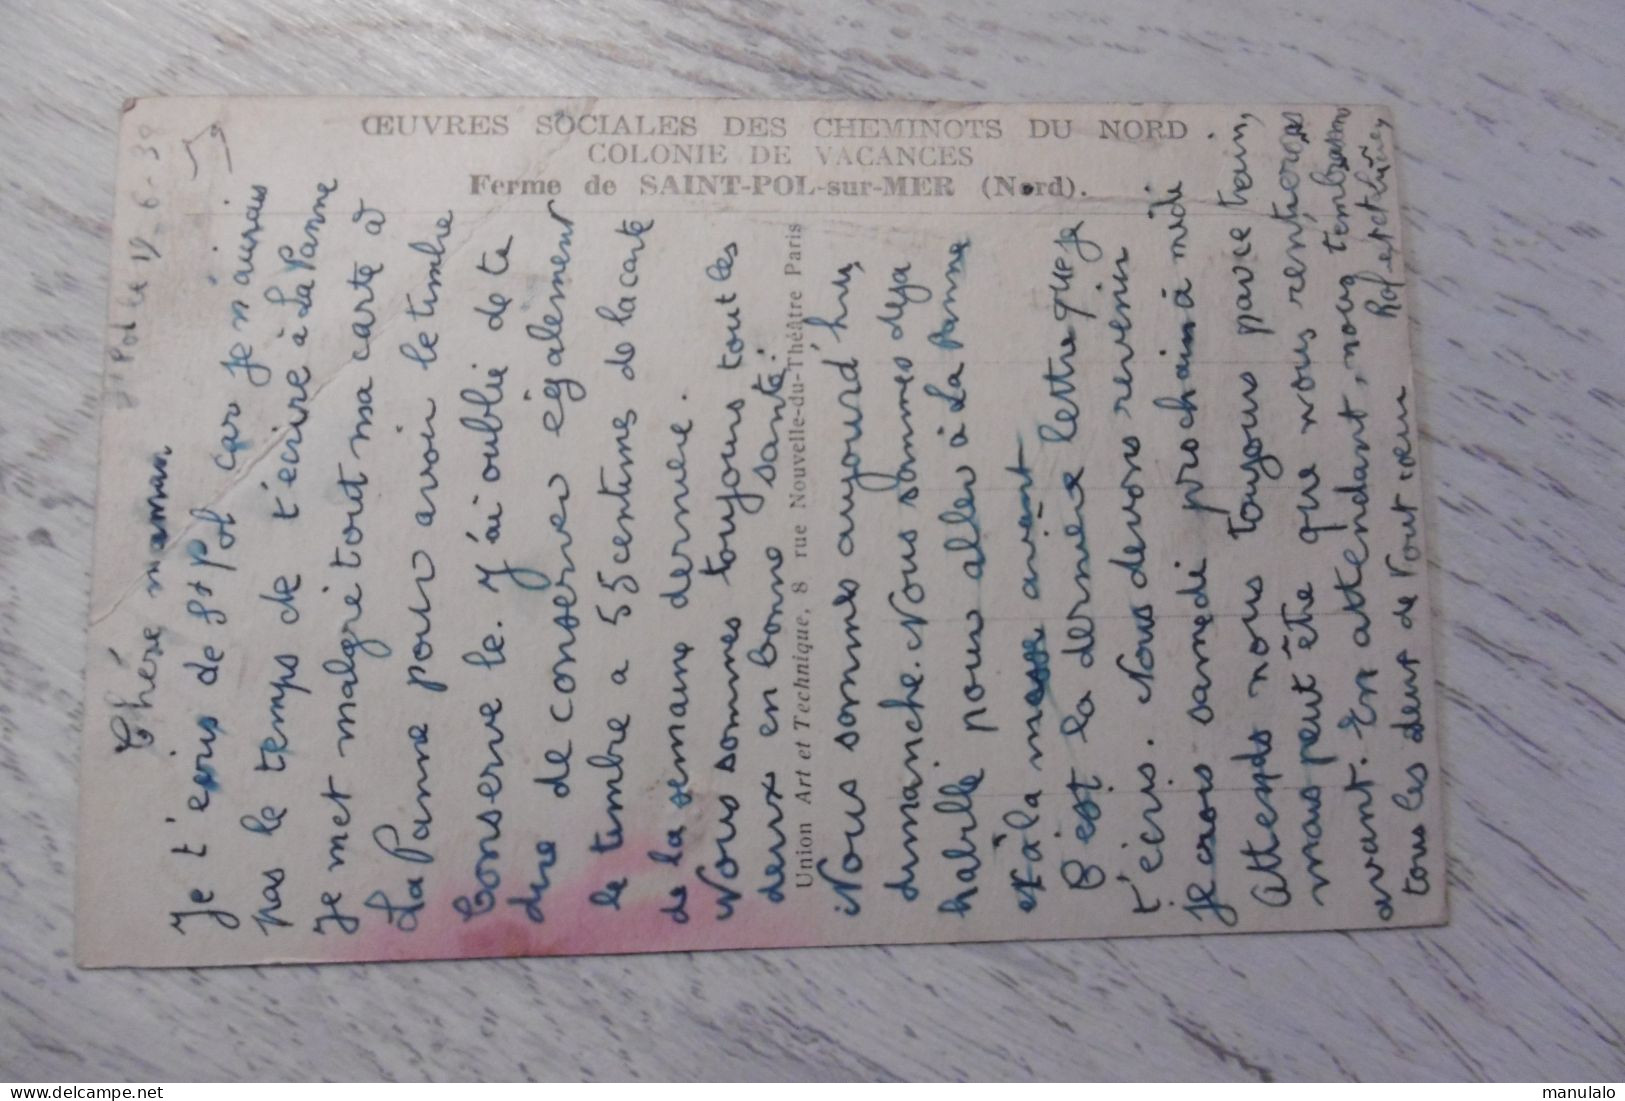 ŒUVRES SOCIALES DES CHEMINOTS DU NORD
COLONIE DE VACANCES
Ferme de SAINT-POL-sur-MER (Nord).
Union Art et Technique, 8 rue Nouvelle-du-Théâtre Paris
St Pol le 19-6-38
Chère maman
Je t'ecris de St Pol car je n'aurais
pas le temps de t'écrire à La Panne
Je met malgré tout ma carte à
La Panne pour avoir le timbre
Conserve le. J'ai oublié de te
dire de conserver également
le timbre a 55 centimes de la carte
de la semaine derniere.
Nous sommes toujours tout les
deux en bonne santé.
Nous sommes aujourd'hui
dimanche. Nous sommes deja
habillé pour aller à La Panne
et à la messe avant
C'est la derniere lettre que je
t'écris. Nous devons revenir
Je crois samedi prochain à midi
Attends nous toujours pavce tain,
mais peut être que nous rentrerons
avant. En attendant, nous t'embrassons
tous les deux de tout cœur
manulalo